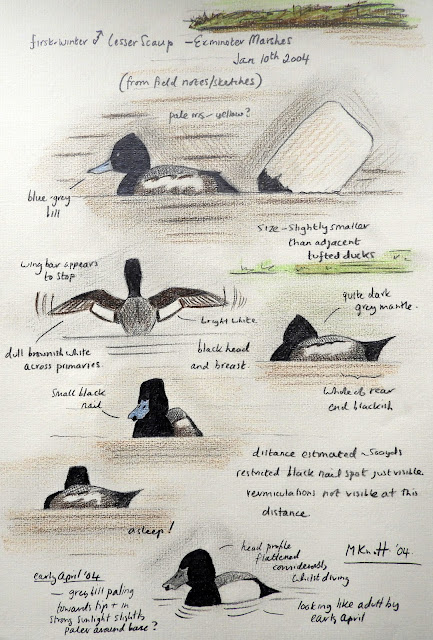 first-winter ♂ Lesser Scaup – Exminster Marshes
Jan 10th 2004
(from field notes/sketches)
pale iris – yellow?
blue-grey
bill
size – slightly smaller
than adjacent
tufted ducks
wing bar appears
to stop
bright white
dull brownish white
across primaries
black head
and breast.
quite dark
grey mantle.
whole of rear
end blackish
small black
nail
distance estimated ~ 500yds
restricted black nail spot just visible.
vermiculations not visible at this
distance.
asleep!
head profile
flattened
considerably
whilst diving
MKnott '04
early April '04
– grey bill paling
towards tip + in
strong sunlight slightly
paler around base?
looking like adult by
early April